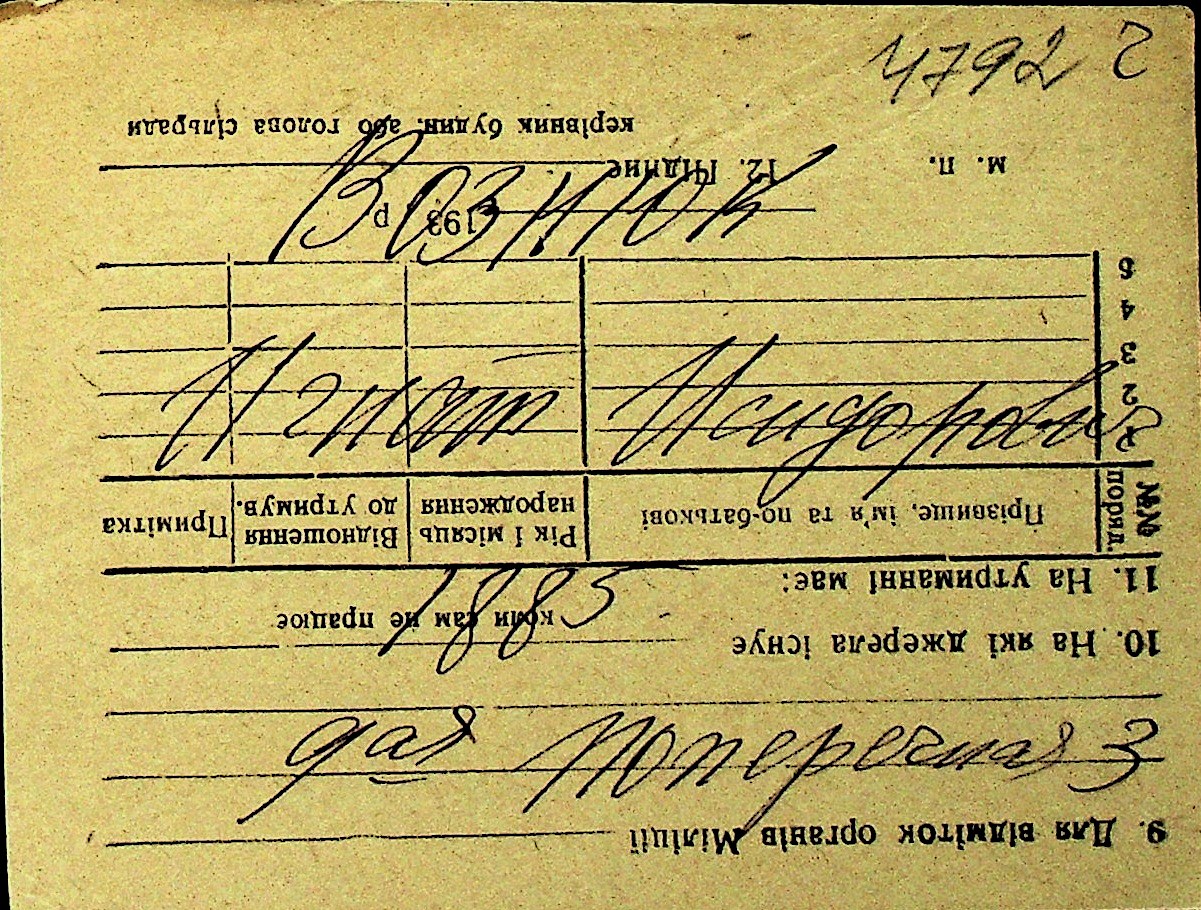 4792
Вознюк
Игнат Исидорович
1885
9ая Поперечная 3
9. Для відміток органів Міліції
10. На які джерела існує
коли сам не працює
11. На утриманні має:
№№ поряд.
Прізвище, ім'я та по-батькові
Рік і місяць народження
Відношення до утримув.
Примітка
1
2
3
4
5
193 р
м. п.
12. Підпис
керівник будин. або голова сільради